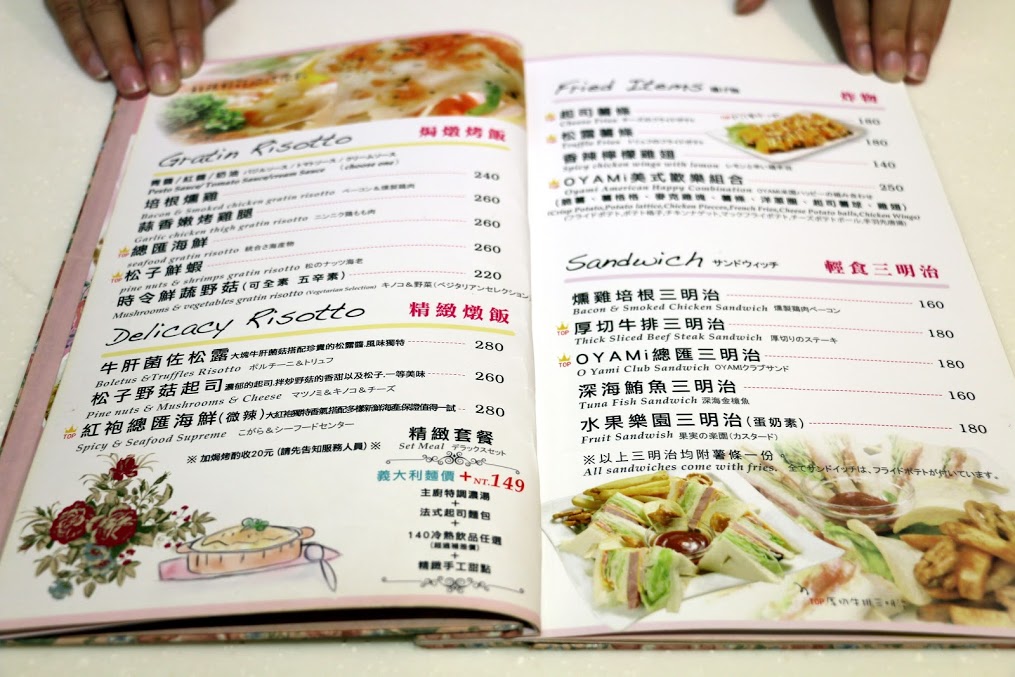 Gratin Risotto 焗燉烤飯
青醬/紅醬/奶油
Pesto Sauce/ Tomato Sauce/cream Sauce (choose one) 240
培根燻雞 260
Bacon & Smoked chicken gratin risotto ベーコン&燻製鶏肉
蒜香嫩烤雞腿 260
Garlic chicken thigh gratin risotto ニンニク鶏もも肉
TOP 總匯海鮮 260
seafood gratin risotto 統合さ海産物
TOP 松子鮮蝦 220
pine nuts & shrimps gratin risotto 松のナッツ海老
時令鮮蔬野菇(可全素 五辛素)
Mushrooms & vegetables gratin risotto (Vegetarian Selection) キノコ&野菜(ベジタリアンセレクション)
Delicacy Risotto 精緻燉飯
牛肝菌佐松露 大塊牛肝菌菇搭配珍貴的松露醬,風味獨特 280
Boletus &Truffles Risotto ポルチーニ&トリュフ
松子野菇起司 濃郁的起司,拌炒野菇的香甜以及松子,一等美味 260
Pine nuts & Mushrooms & Cheese マツノミ&キノコ&チーズ
TOP 紅袍總匯海鮮(微辣) 大紅袍獨特香氣搭配多樣新鮮海產保證值得一試 280
Spicy & Seafood Supreme こがら&シーフードセンター
※ 加焗烤酌收20元 (請先告知服務人員) ※
精緻套餐
Set Meal デラックスセット
義大利麵價 +NT.149
主廚特調濃湯
+
法式起司麵包
+
140冷熱飲品任選
(超過補差價)
+
精緻手工甜點
Fried Items 揚げ物 炸物
起司薯條 180
Cheese Fries チーズのフライドポテト
松露薯條 180
Truffle Fries トリュフのフライドポテト
香辣檸檬雞翅 140
Spicy chicken wings with lemon
OYAMi美式歡樂組合 250
Oyami American Happy Combination
(脆薯、薯格格、麥克雞塊、薯條、洋蔥圈、起司薯球、雞翅)
(Crisp Potato,Potato lattice,Chicken Pieces,French Fries,Cheese Potato balls,Chicken Wings)
Sandwich サンドウィッチ 輕食三明治
燻雞培根三明治 160
Bacon & Smoked Chicken Sandwich 燻製鶏肉ベーコン
TOP 厚切牛排三明治 180
Thick Sliced Beef Steak Sandwich 厚切りのステーキ
TOP OYAMi總匯三明治 180
O Yami Club Sandwich OYAMIクラブサンド
深海鮪魚三明治 160
Tuna Fish Sandwich 深海金槍魚
水果樂園三明治(蛋奶素) 180
Fruit Sandwish 果実の楽園(カスタード)
※以上三明治均附薯條一份。
All sandwiches come with fries. 全てサンドイッチは、フライドポテトが付いています。
TOP厚切牛排三明治